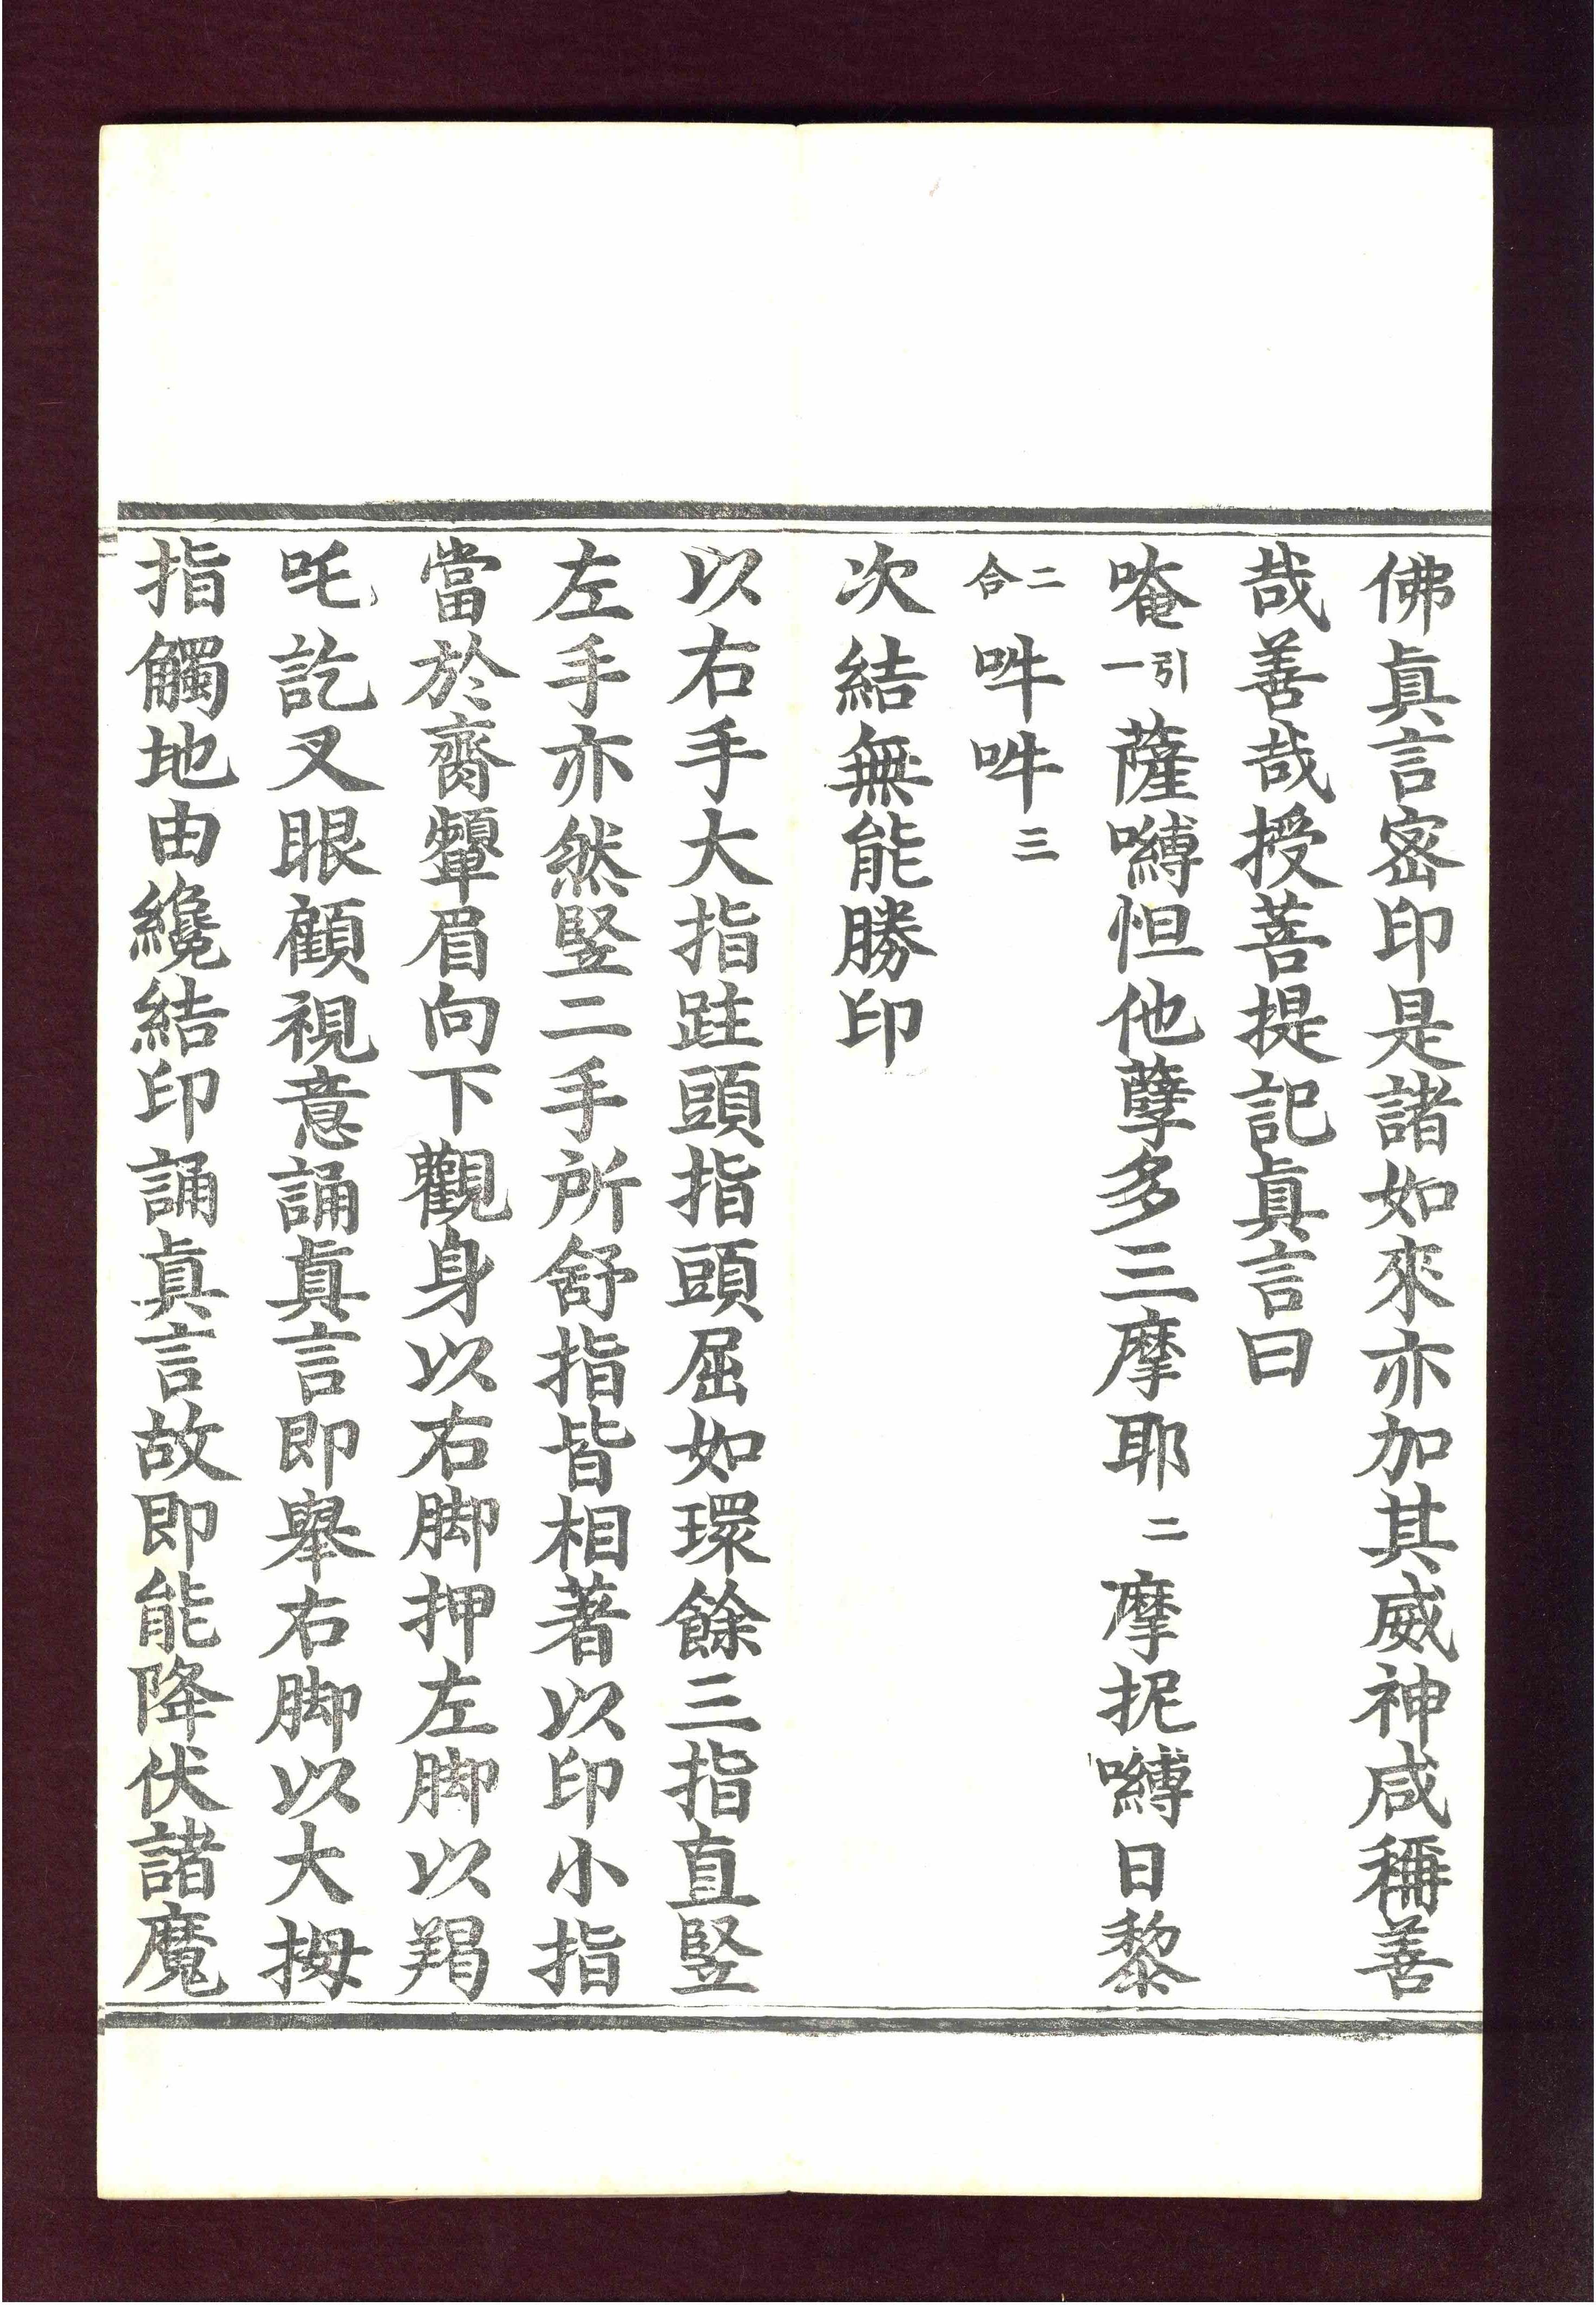 佛眞言密印是諸如來亦加其威神咸稱善
哉善哉授菩提記眞言曰
唵引一薩嚩怛他孽多三摩耶二摩抳嚩日黎
二合吽吽三
次結無能勝印
以右手大指跓頭指頭屈如環餘三指直竪
左手亦然竪二手所舒指皆相著以印小指
當於齎顰眉向下觀身以右脚押左脚以羯
吒訖叉眼顧視意誦眞言即舉右脚以大拇
指觸地由纔結印誦眞言故即能降伏諸魔